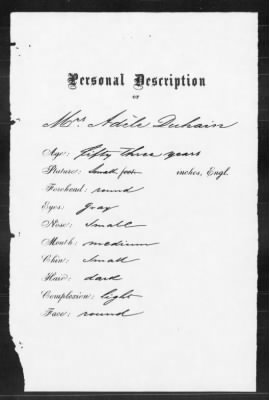 Personal Description
OF
Mrs Adèle Duhain
Age: fifty three years
Stature: Small feet inches, Engl.
Forehead: round
Eyes: gray
Nose: small
Mouth: medium
Chin: small
Hair: dark
Complexion: light
Face: round